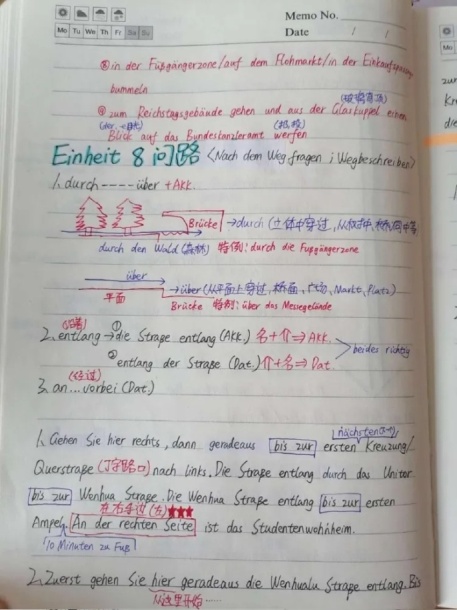 Memo No.
Mo Tu We Th Fr Sa Su
Date / /
⑧ in der Fußgängerzone/auf dem Flohmarkt/in der Einkaufspassage
bummeln
(玻璃穹顶)
⑨ zum Reichstagsgebäude gehen und aus der Glaskuppel einen
(der, -e 目光) (投, 掷)
Blick auf das Bundeskanzleramt werfen
Einheit 8 问路 (Nach dem Weg fragen; Wegbeschreiben)
1. durch ----- über + Akk.
Brücke → durch (立体中穿过,
durch den Wald (森林) 特例: durch die Fußgängerzone
über → über (从平面上穿过, 桥面, 广场, Markt, Platz)
平面 Brücke 特例: über das Messegelände
(沿着)
2. entlang → ① die Straße entlang (Akk.) 名+介 ⇒ Akk.
beides richtig
② entlang der Straße (Dat.) 介+名 ⇒ Dat
(经过)
3. an...vorbei (Dat.)
nächsten
1. Gehen Sie hier rechts, dann geradeaus bis zur ersten Kreuzung/
Querstraße (丁字路口) nach links. Die Straße entlang durch das Unitor
bis zur Wenhua Straße. Die Wenhua Straße entlang bis zur ersten
在右手边 (方) ★★★
Ampel. An der rechten Seite ist das Studentenwohnheim.
10 Minuten zu Fuß
2. Zuerst gehen Sie hier geradeaus die Wenhualu Straße entlang. Bis
从这里开始......